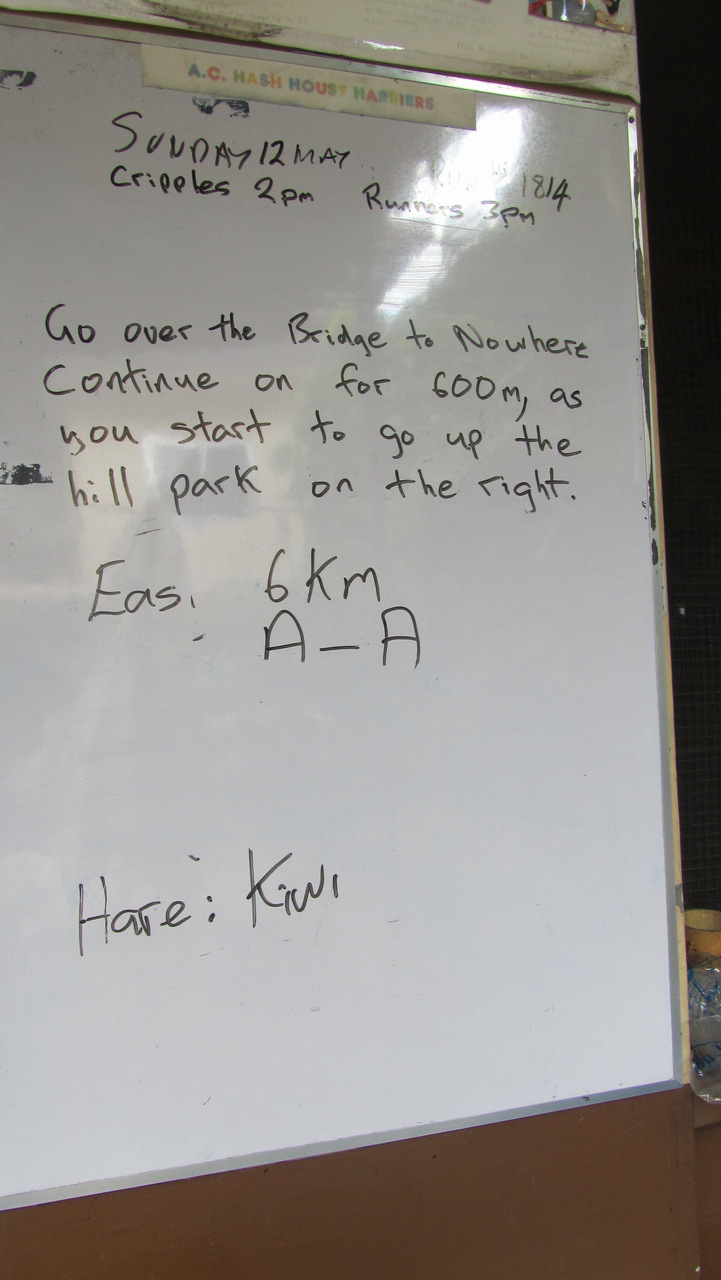 A.C. HASH HOUSE HARRIERS
SUNDAY 12 MAY
1814
Cripples 2pm Runners 3pm
Go over the Bridge to Nowhere
Continue on for 600m, as
you start to go up the
hill park on the right.
Eas. 6Km
A-A
Hare: Kiwi